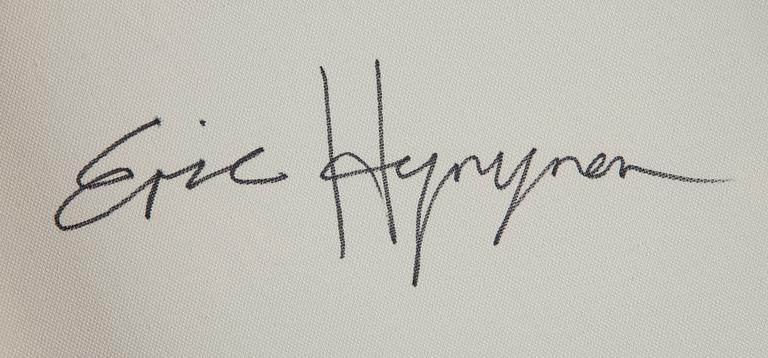 Eric Hynynen